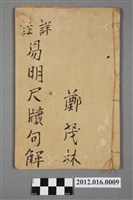 詳註
易明尺牘句解
鄭茂林
2012.016.0009